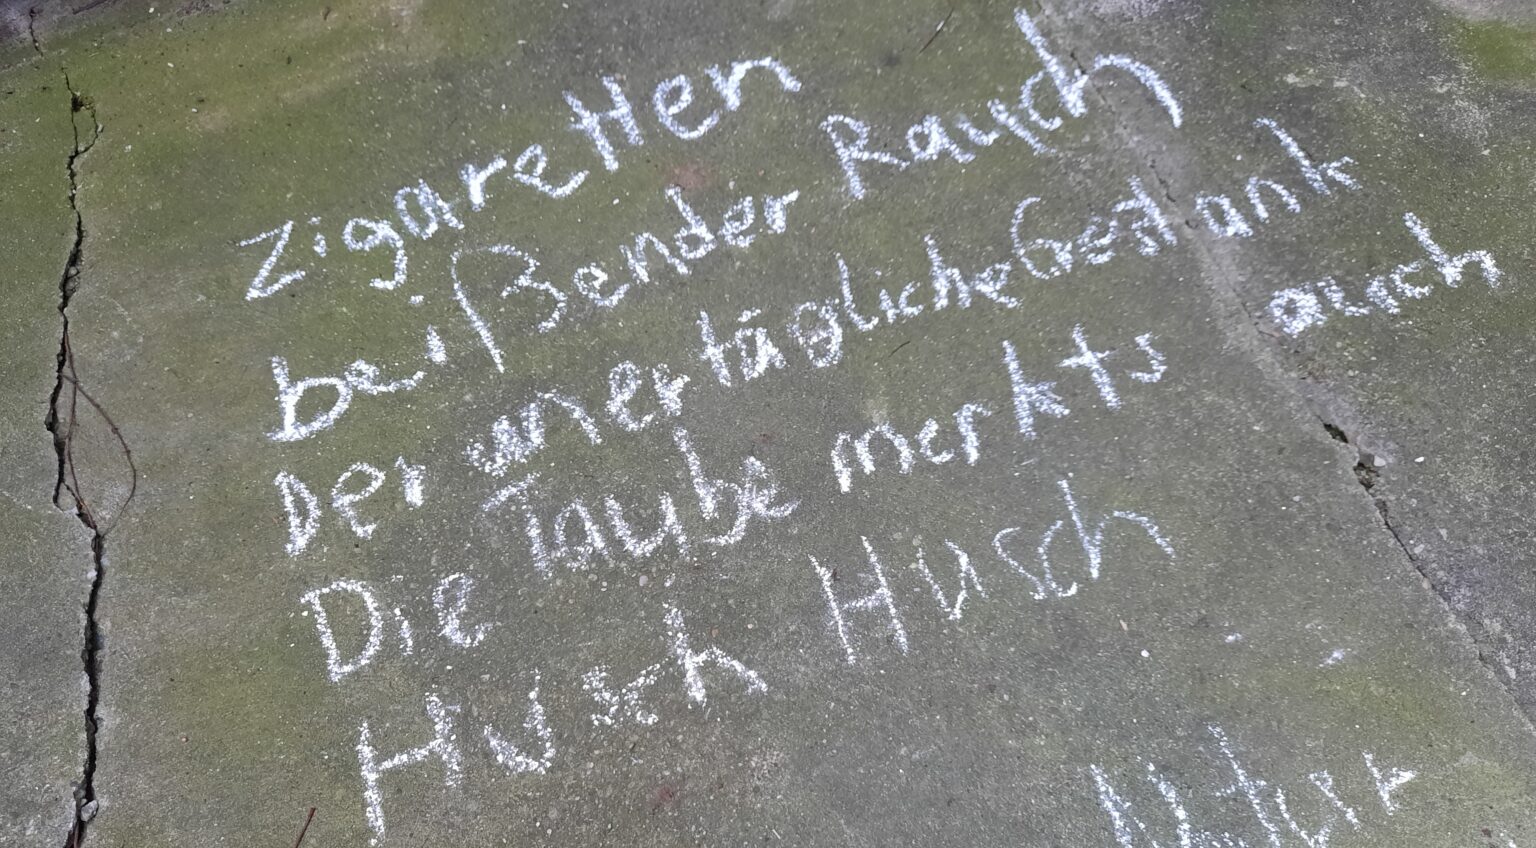 Zigaretten
beißender Rauch
Der unerträgliche Gestank
Die Taube merkts auch
Husch Husch